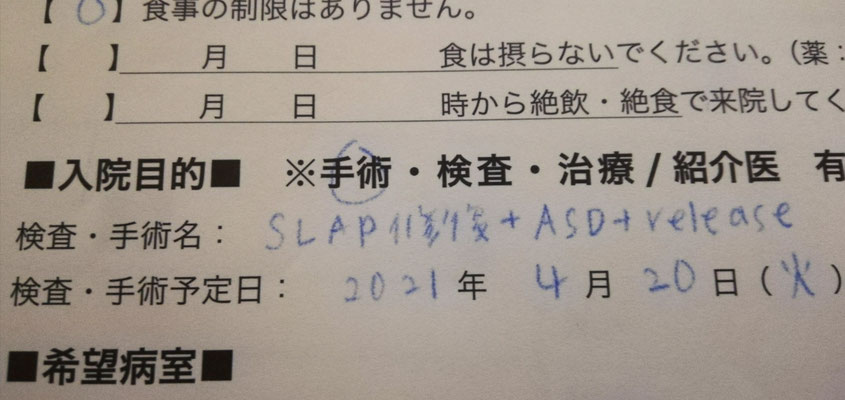 【 ○ 】食事の制限はありません。
【　　】　　　月　　　日　　　　　食は摂らないでください。（薬：
【　　】　　　月　　　日　　　　　時から絶飲・絶食で来院してく
■入院目的■　※手術・検査・治療 / 紹介医　有
検査・手術名： SLAP修復+ASD+release
検査・手術予定日： 2021 年 4 月 20 日（火）
■希望病室■